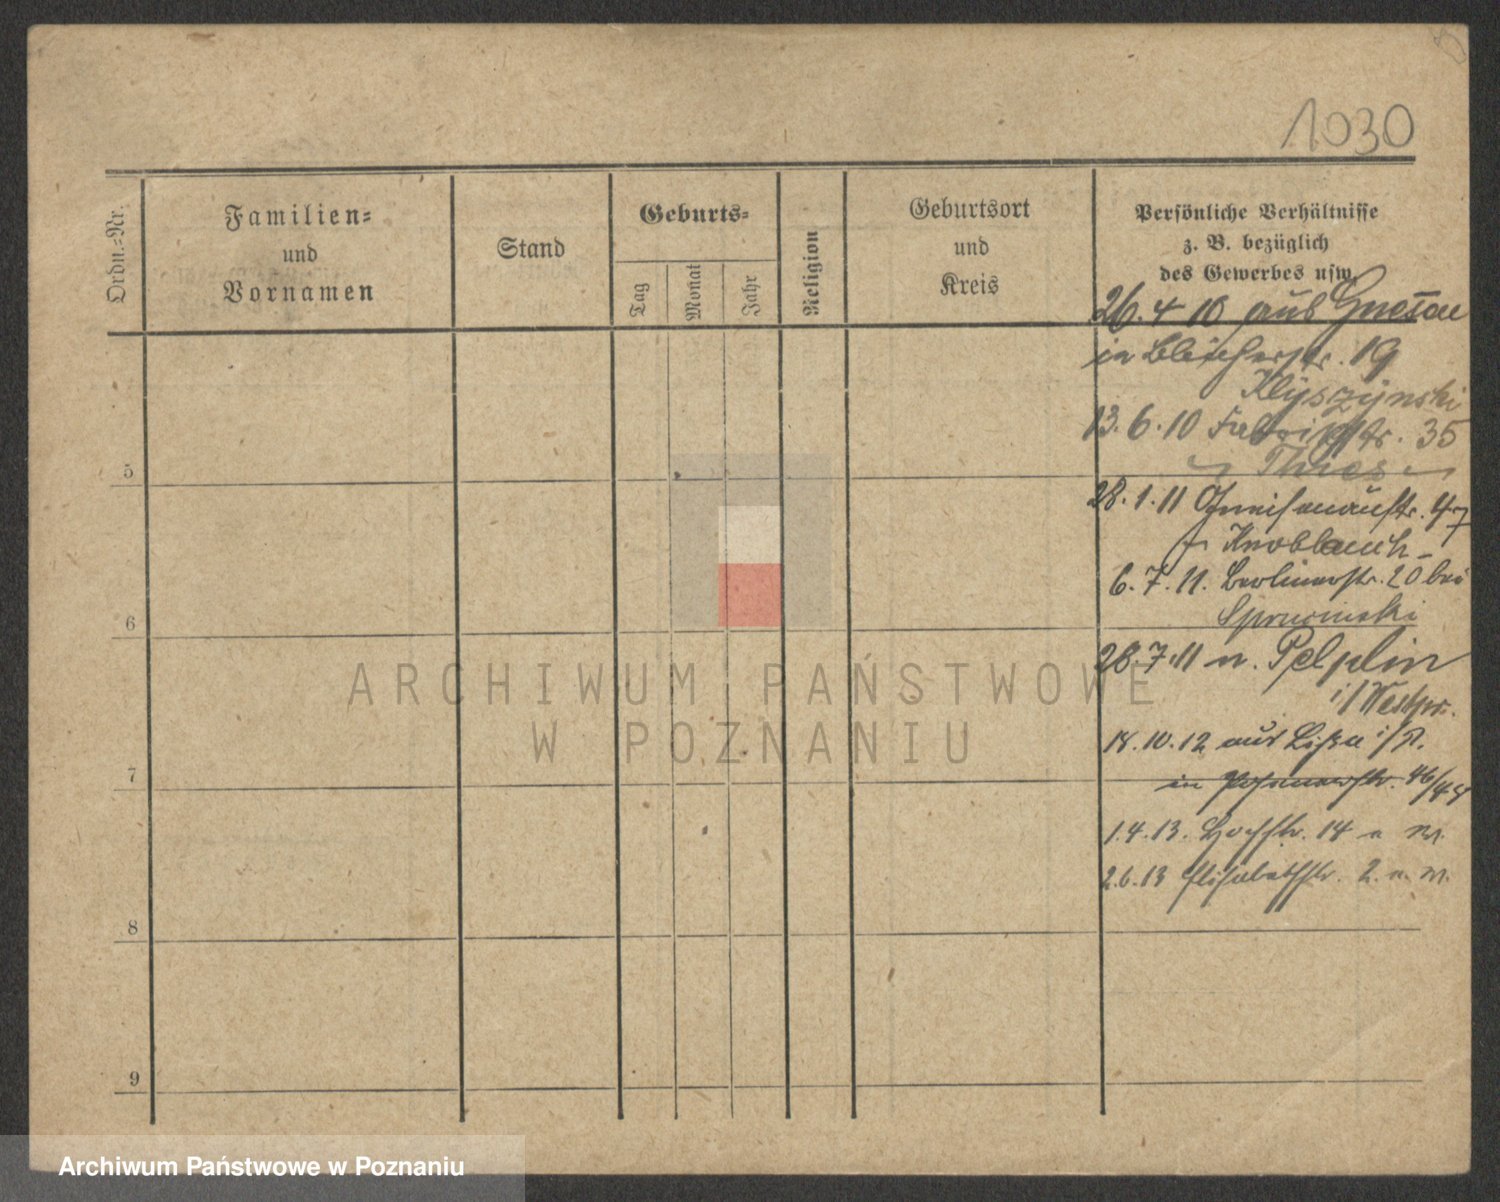 1030
Ordn.-Nr.
Familien-
und
Vornamen
Stand
Geburts-
Tag
Monat
Jahr
Religion
Geburtsort
und
Kreis
Persönliche Verhältnisse
z. B. bezüglich
des Gewerbes usw.
26.4 10 aus Gnesen
in Blücherstr. 19
Klyszynski
13.6.10 Fabrikstr. 35
Thies
28.1.11 Gneisenaustr. 47
Knoblauch
6.7.11. Berlinerstr. 20 bei
28.7.11 n. Pelplin
i/Westpr.
18.10.12 aus Lissa i/P.
in Posenerstr. 46/
1.4.13. Hochstr. 14
2.6.13 Elisabethstr. 2.
5
6
7
8
9
ARCHIWUM PAŃSTWOWE
W POZNANIU
Archiwum Państwowe w Poznaniu